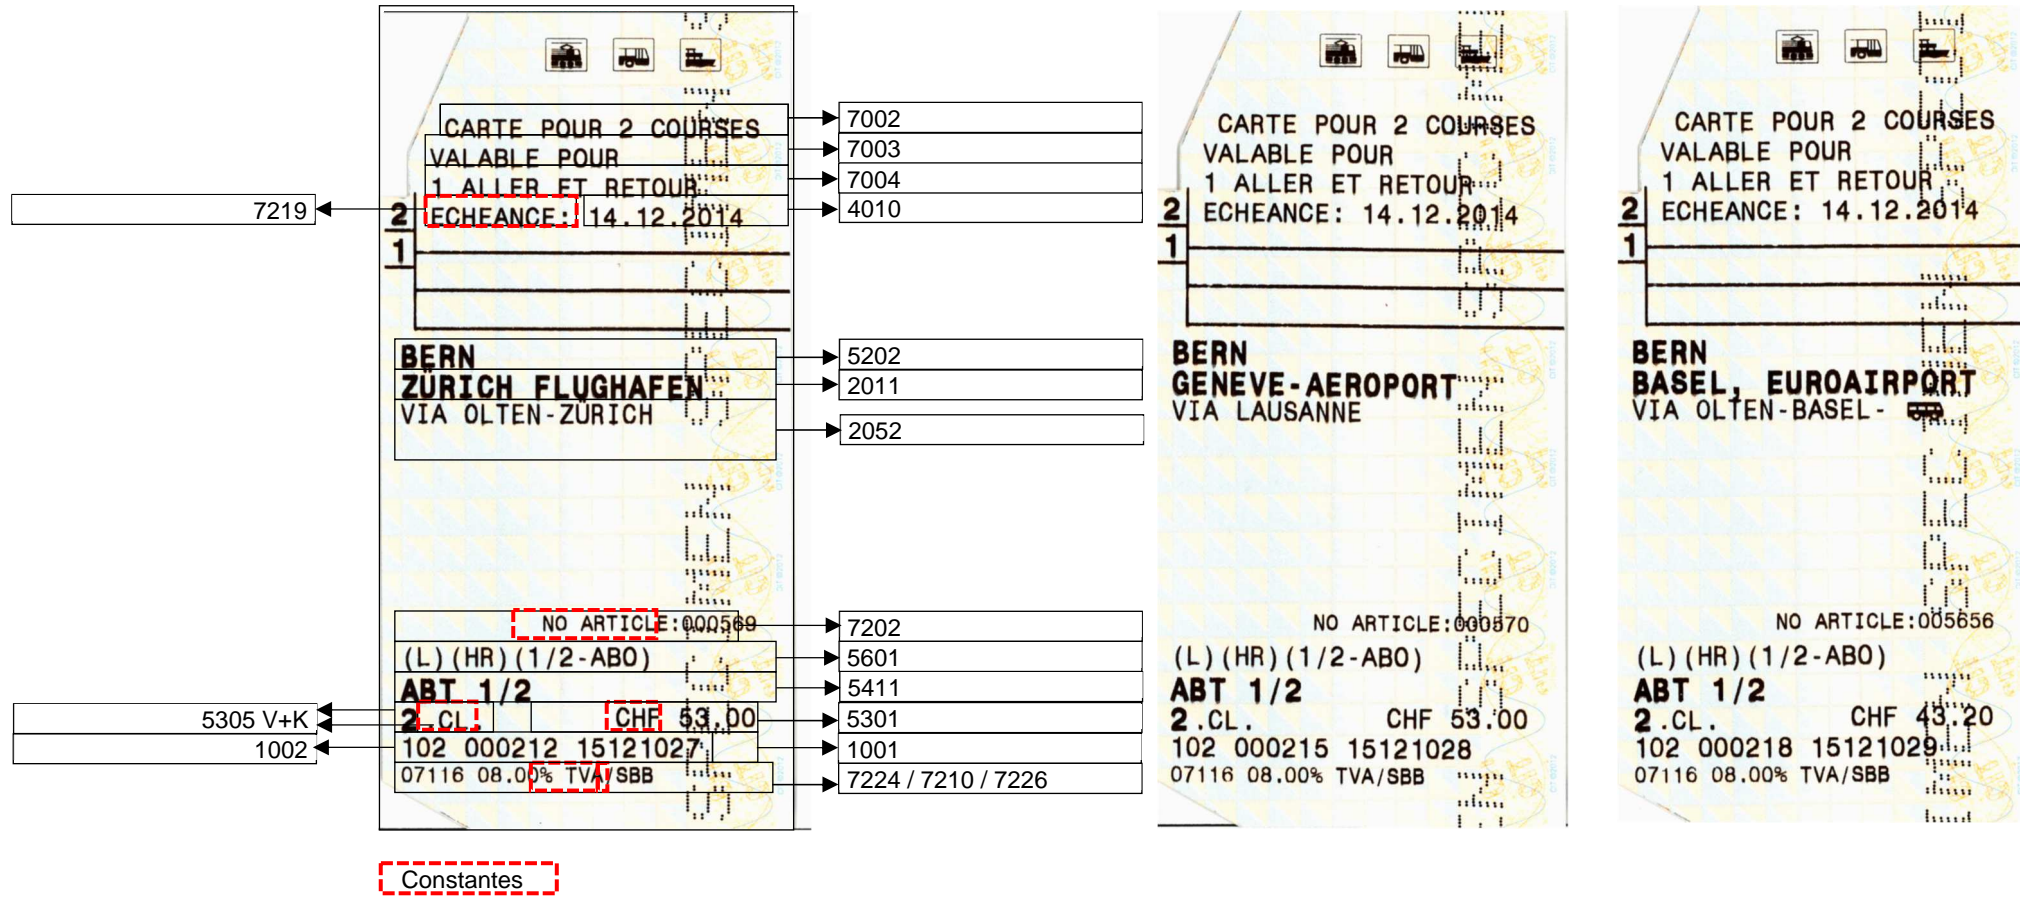 CARTE POUR 2 COURSES
VALABLE POUR
1 ALLER ET RETOUR
2 ECHEANCE: 14.12.2014
1
BERN
ZÜRICH FLUGHAFEN
VIA OLTEN-ZÜRICH
NO ARTICLE:000569
(L)(HR)(1/2-ABO)
ABT 1/2
2.CL. CHF 53.00
102 000212 15121027
07116 08.00% TVA/SBB
7219
5305 V+K
1002
7002
7003
7004
4010
5202
2011
2052
7202
5601
5411
5301
1001
7224 / 7210 / 7226
Constantes
CARTE POUR 2 COURSES
VALABLE POUR
1 ALLER ET RETOUR
2 ECHEANCE: 14.12.2014
1
BERN
GENEVE-AEROPORT
VIA LAUSANNE
NO ARTICLE:000570
(L)(HR)(1/2-ABO)
ABT 1/2
2.CL. CHF 53.00
102 000215 15121028
07116 08.00% TVA/SBB
CARTE POUR 2 COURSES
VALABLE POUR
1 ALLER ET RETOUR
2 ECHEANCE: 14.12.2014
1
BERN
BASEL, EUROAIRPORT
VIA OLTEN-BASEL-
NO ARTICLE:005656
(L)(HR)(1/2-ABO)
ABT 1/2
2.CL. CHF 43.20
102 000218 15121029
07116 08.00% TVA/SBB